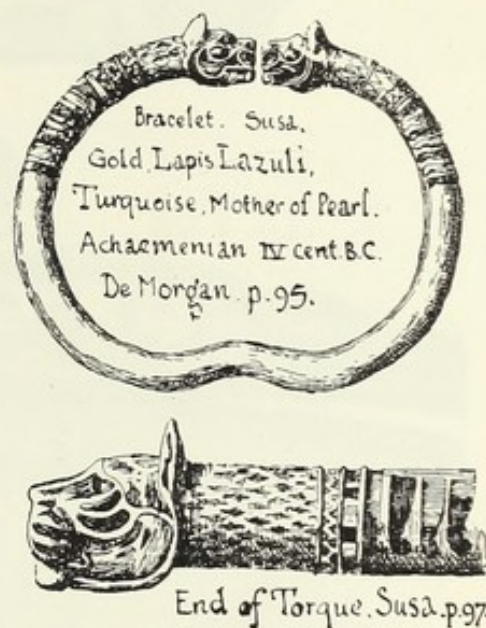 Bracelet. Susa.
Gold, Lapis Lazuli,
Turquoise, Mother of Pearl.
Achaemenian IV cent. B.C.
De Morgan. p. 95.
End of Torque, Susa. p. 97